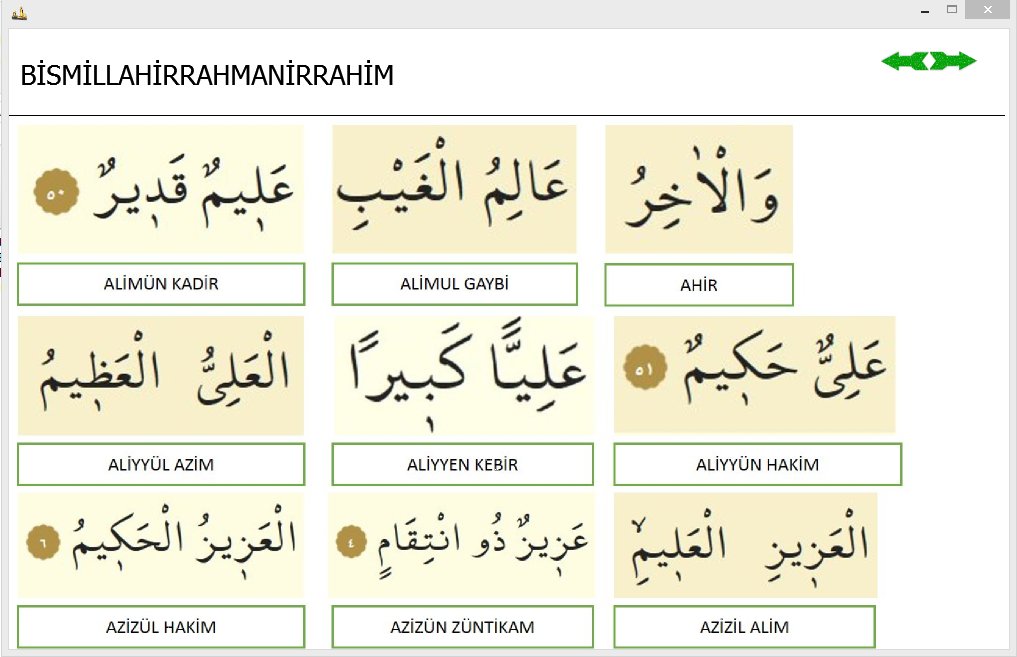 BİSMİLLAHİRRAHMANİRRAHİM
وَالْاٰخِرُ
عَالِمُ الْغَيْبِ
عَلٖيمٌ قَدٖيرٌ ٥٠
ALİMÜN KADİR
ALİMUL GAYBİ
AHİR
عَلِىٌّ حَكٖيمٌ ٥١
عَلِيًّا كَبٖيرًا
الْعَلِىُّ الْعَظٖيمُ
ALİYYÜL AZİM
ALİYYEN KEBİR
ALİYYÜN HAKİM
الْعَزٖيزِ الْعَلٖيمِۙ
عَزٖيزٌ ذُو انْتِقَامٍ ٤
الْعَزٖيزُ الْحَكٖيمُ ٦
AZİZÜL HAKİM
AZİZÜN ZÜNTİKAM
AZİZİL ALİM